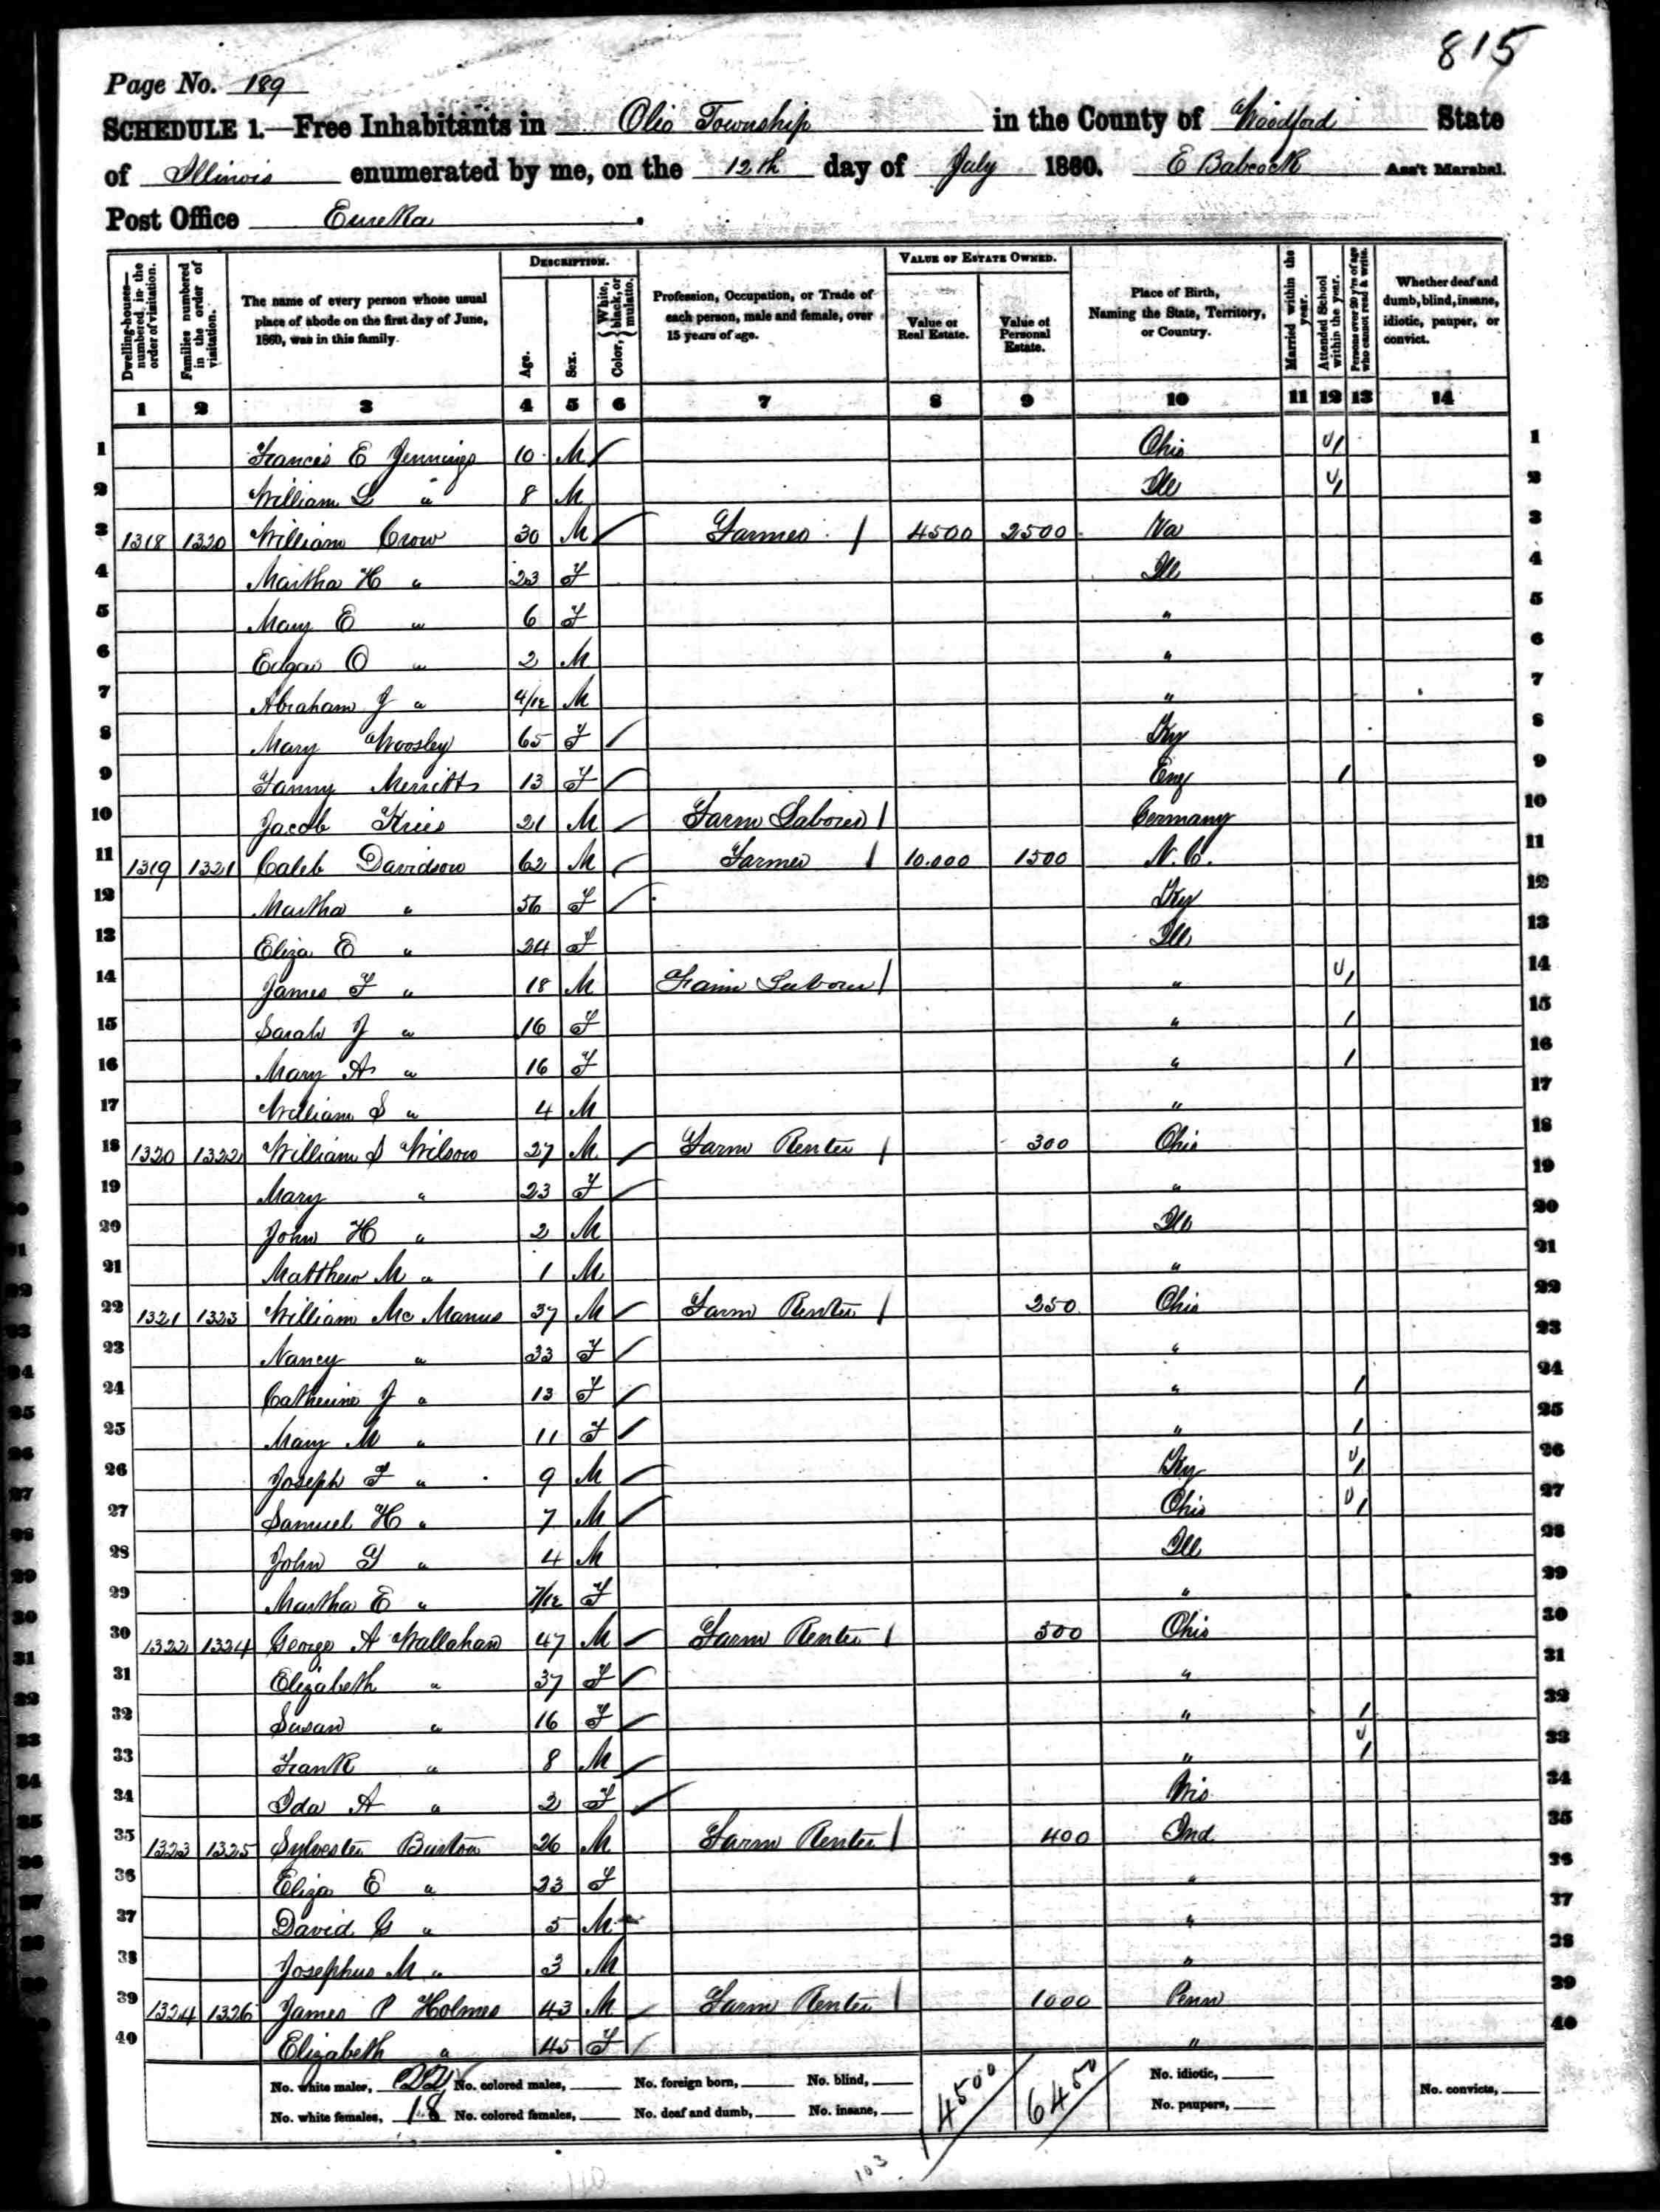 815
Page No. 189
SCHEDULE 1.—Free Inhabitants in Olio Township in the County of Woodford State
of Illinois enumerated by me, on the 12th day of July 1860. E Babcock Ass't Marshal.
Post Office Eureka.
Dwelling-houses—numbered in the order of visitation. Families numbered in the order of visitation. The name of every person whose usual place of abode on the first day of June, 1860, was in this family. DESCRIPTION. Age. Sex. Color, { White, black, or mulatto. Profession, Occupation, or Trade of each person, male and female, over 15 years of age. VALUE OF ESTATE OWNED. Value of Real Estate. Value of Personal Estate. Place of Birth, Naming the State, Territory, or Country. Married within the year. Attended School within the year. Persons over 20 y'rs of age who cannot read & write. Whether deaf and dumb, blind, insane, idiotic, pauper, or convict.
1 2 3 4 5 6 7 8 9 10 11 12 13 14
1 Francis E Jennings 10 M Ohio 1 1
2 William L " 8 M Ill 1 2
3 1318 1320 William Crow 30 M Farmer 4500 2500 Va 3
4 Martha H " 23 F Ill 4
5 Mary E " 6 F " 5
6 Edgar O " 2 M " 6
7 Abraham J " 4/12 M " 7
8 Mary Woosley 65 F Ky 8
9 Fanny Merritts 13 F Eng 1 9
10 Jacob Kries 21 M Farm Laborer Germany 10
11 1319 1321 Caleb Davidson 62 M Farmer 10.000 1500 N.C. 11
12 Martha " 56 F Ky 12
13 Eliza E " 24 F Ill 13
14 James F " 18 M Farm Laborer " 1 14
15 Sarah J " 16 F " 1 15
16 Mary A " 16 F " 1 16
17 William S " 4 M " 17
18 1320 1322 William S Wilson 27 M Farm Renter 300 Ohio 18
19 Mary " 23 F " 19
20 John H " 2 M Ill 20
21 Matthew M " 1 M " 21
22 1321 1323 William Mc Manus 37 M Farm Renter 250 Ohio 22
23 Nancy " 33 F " 23
24 Catherine J " 13 F " 1 24
25 Mary M " 11 F " 1 25
26 Joseph F " 9 M Ky 1 26
27 Samuel H " 7 M Ohio 1 27
28 John G " 4 M Ill 28
29 Martha E " 7/12 F " 29
30 1322 1324 George A Wallahan 47 M Farm Renter 500 Ohio 30
31 Elizabeth " 37 F " 31
32 Susan " 16 F " 1 32
33 Frank " 8 M " 1 33
34 Ida A " 2 F Wis 34
35 1323 1325 Sylvester Burton 26 M Farm Renter 400 Ind 35
36 Eliza E " 23 F " 36
37 David G " 5 M " 37
38 Josephus M " 3 M " 38
39 1324 1326 James P Holmes 43 M Farm Renter 1000 Penn 39
40 Elizabeth " 45 F " 40
No. white males, 22 No. colored males, No. foreign born, No. blind, 14500 6450 No. idiotic,
No. white females, 18 No. colored females, No. deaf and dumb, No. insane, No. paupers, No. convicts,
103